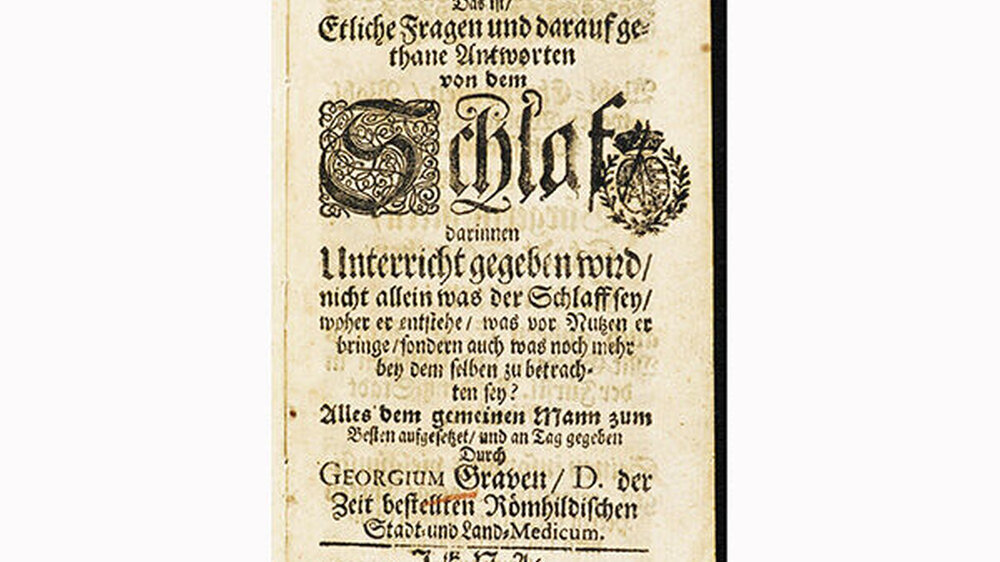 Das ist/
Etliche Fragen und darauf ge-
thane Antworten
von dem
Schlaf
darinnen
Unterricht gegeben wird/
nicht allein was der Schlaff sey/
woher er entstehe/ was vor Nutzen er
bringe/ sondern auch was noch mehr
bey dem selben zu betrach-
ten sey?
Alles dem gemeinen Mann zum
Besten aufgesetzet/ und an Tag gegeben
Durch
GEORGIUM Graven/ D. der
Zeit bestellten Römhildischen
Stadt- und Land-Medicum.
JENA/